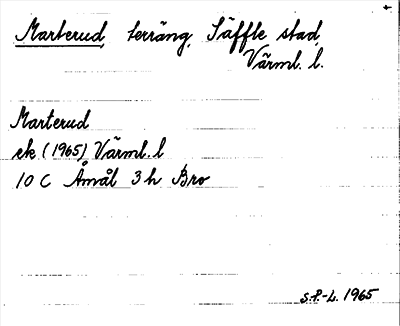 Marterud, terräng, Säffle stad,
Värml. l.
Marterud
ek (1965) Värml. l
10 C Åmål 3 h Bro
S.P.-L. 1965